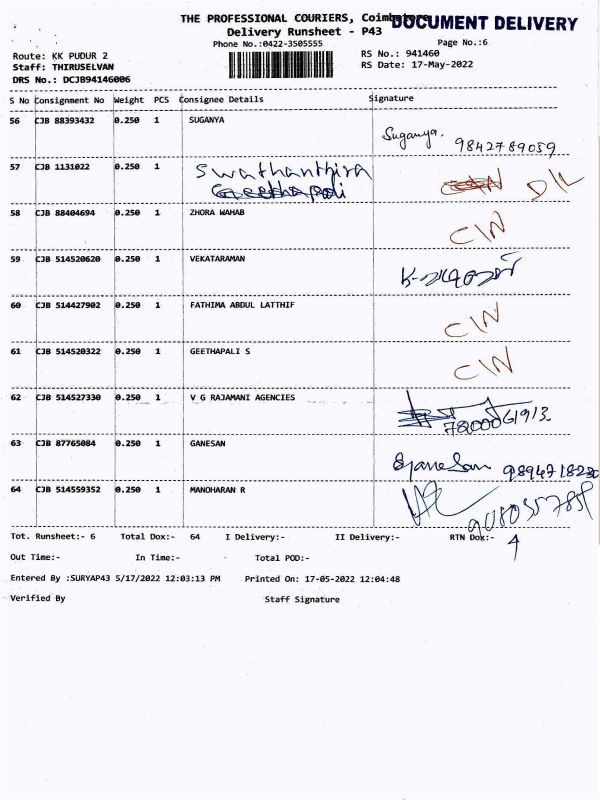 THE PROFESSIONAL COURIERS, Coimbatore
DOCUMENT DELIVERY
Delivery Runsheet - P43
Phone No.:0422-3505555
Page No.:6
Route: KK PUDUR 2
RS No.: 941460
Staff: THIRUSELVAN
RS Date: 17-May-2022
DRS No.: DCJB94146006
S No Consignment No Weight PCS Consignee Details Signature
56 CJB 88393432 0.250 1 SUGANYA Suganya. 9842789059
57 CJB 1131022 0.250 1 Swathanthira D/L
58 CJB 88404694 0.250 1 ZHORA WAHAB C/N
59 CJB 514520620 0.250 1 VEKATARAMAN
60 CJB 514427902 0.250 1 FATHIMA ABDUL LATTHIF C/N
61 CJB 514520322 0.250 1 GEETHAPALI S C/N
62 CJB 514527330 0.250 1 V G RAJAMANI AGENCIES
63 CJB 87765084 0.250 1 GANESAN Ganesan
64 CJB 514559352 0.250 1 MANOHARAN R
Tot. Runsheet:- 6 Total Dox:- 64 I Delivery:- II Delivery:- RTN Dox:- 4
Out Time:- In Time:- Total POD:-
Entered By :SURYAP43 5/17/2022 12:03:13 PM Printed On: 17-05-2022 12:04:48
Verified By Staff Signature